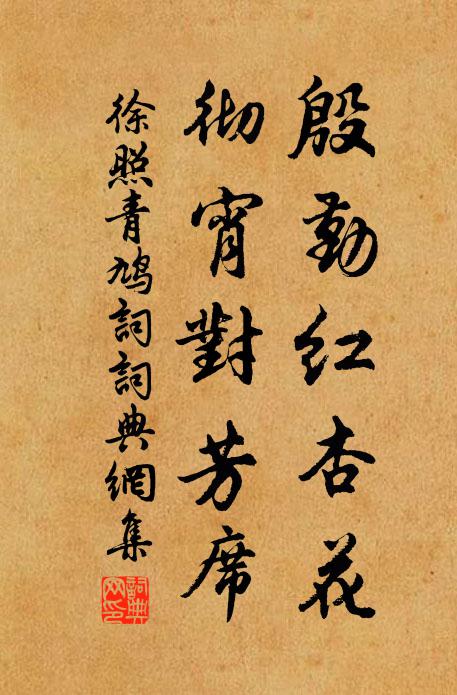 殷勤红杏花
彻宵對芳席
徐照青鸠詞詞典網集
詞典網印